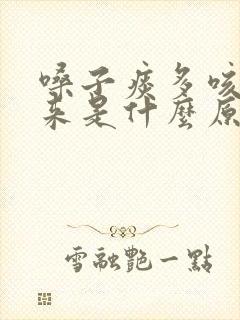 嗓子痰多咳
来是什麼原
雪融艷一點